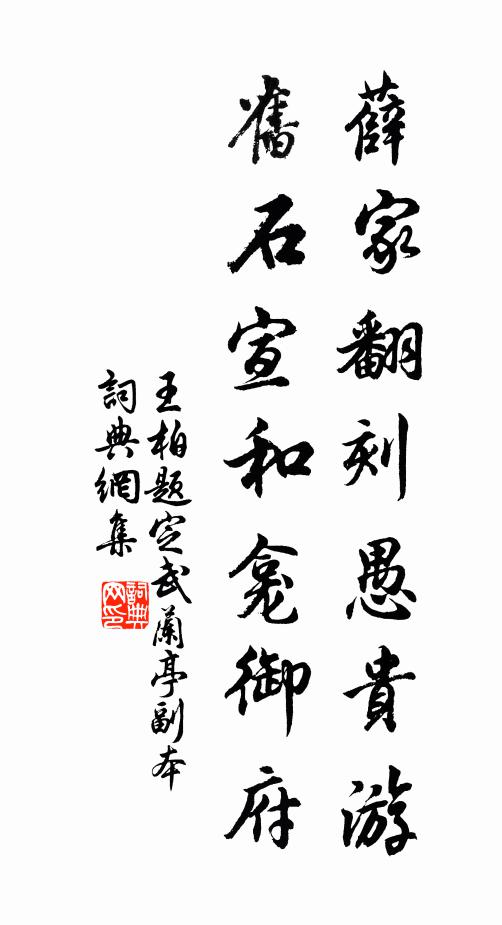 薛家翻刻愚貴游
舊石宣和龛御府
王柏題定武蘭亭副本
詞典網集
詞典网印